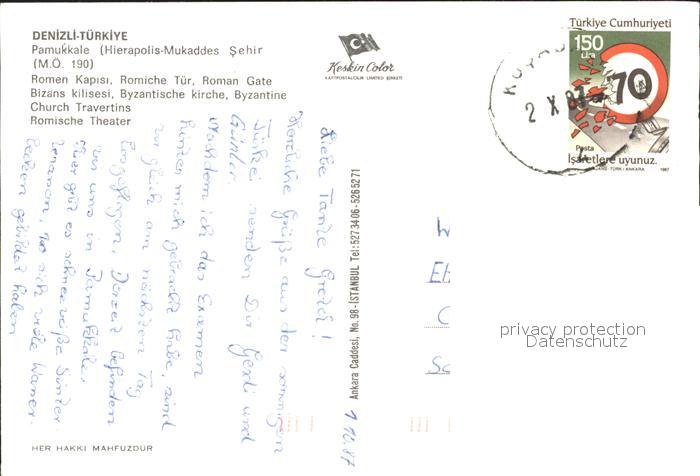 DENİZLİ-TÜRKİYE
Pamukkale (Hierapolis-Mukaddes Şehir
(M.Ö. 190)
Romen Kapısı, Romiche Tür, Roman Gate
Bizans kilisesi, Byzantische kirche, Byzantine
Church Travertins
Romische Theater
Keskin Color
KARTPOSTALCILIK LIMITED ŞİRKETİ
Türkiye Cumhuriyeti
150
Lira
70
Posta
İşaretlere uyunuz.
AJANS-TÜRK / ANKARA 1987
2 X 87
Liebe Tante Gretel!
Herzliche Grüße aus der sonnigen
Türkei senden Dir Gerdi und
Günter
Nachdem ich das Examen
hinter mich gebracht habe, sind
wir gleich am nächsten Tag
losgeflogen. Derzeit befinden
wir uns in Pamukkale.
Hier gibt es schneeweiße Sinter-
terrassen, wo sich viele Wasser-
becken gebildet haben
1.10.87
Ankara Caddesi, No. 98 - İSTANBUL Tel: 5273406-5265271
privacy protection
Datenschutz
HER HAKKI MAHFUZDUR